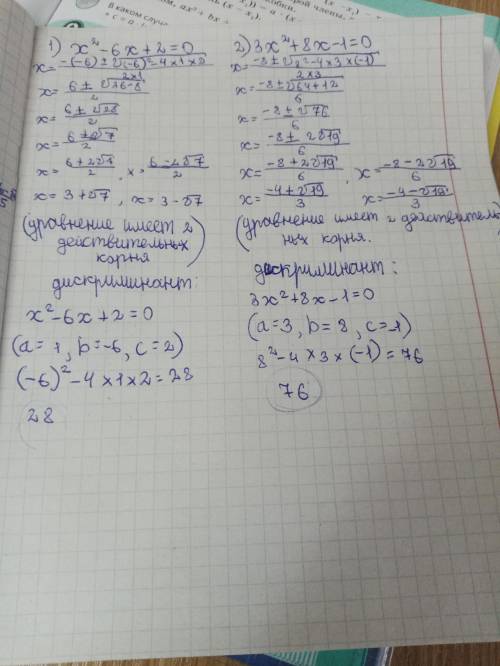 В каком случ
ом, ax² + bx +
1) x²-6x+2=0
x= -(-6)±√(-6)²-4×1×2 / 2×1
x= 6±√36-8 / 2
x= 6±√28 / 2
x= 6±2√7 / 2
x= 6+2√7 / 2 , x= 6-2√7 / 2
x=3+√7 , x=3-√7
(уравнение имеет 2
действительных
корня)
дискриминант:
x²-6x+2=0
(a=1, b=-6, c=2)
(-6)²-4×1×2=28
28
2) 3x²+8x-1=0
x= -8±√8²-4×3×(-1) / 2×3
x= -8±√64+12 / 6
x= -8±√76 / 6
x= -8±2√19 / 6
x= -8+2√19 / 6 , x= -8-2√19 / 6
x= -4+√19 / 3 x= -4-√19 / 3
(уравнение имеет 2 действитель
ных корня.
дискриминант:
3x²+8x-1=0
(a=3, b=8, c=-1)
8²-4×3×(-1)=76
76